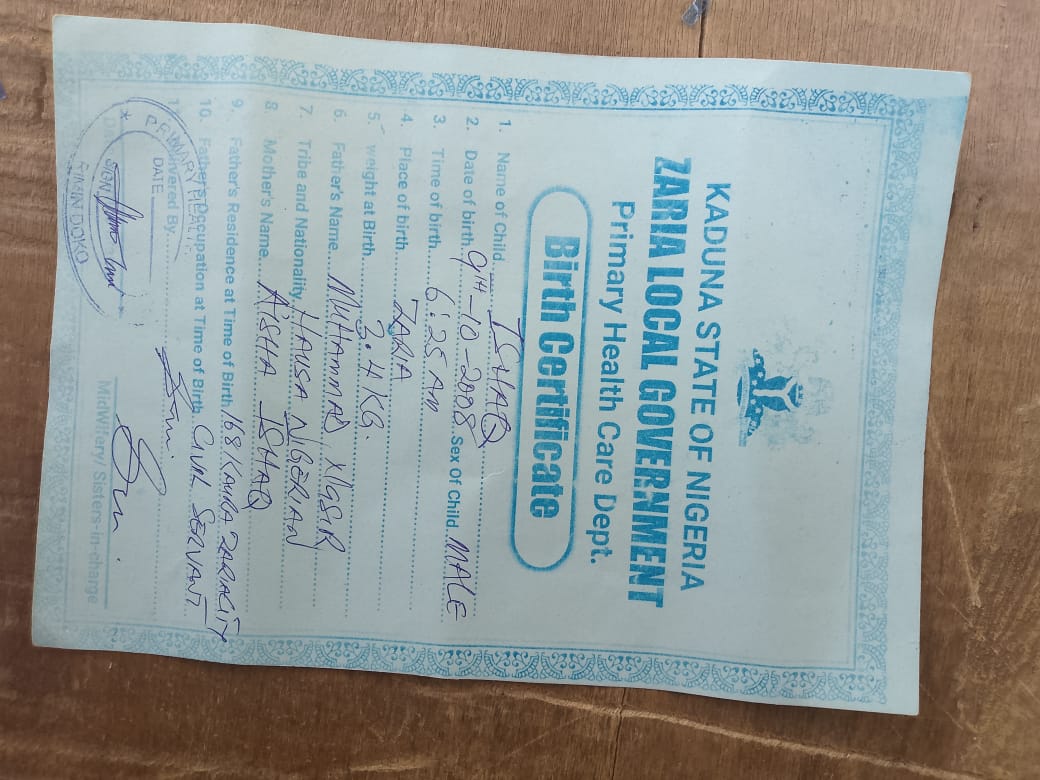 KADUNA STATE OF NIGERIA
ZARIA LOCAL GOVERNMENT
Primary Health Care Dept.
Birth Certificate
1. Name of Child ISHAQ
2. Date of birth 9TH-10-2008 Sex Of Child MALE
3. Time of birth 6:25 AM
4. Place of birth ZARIA
5. weight at Birth 3.4 KG.
6. Father's Name MUHAMMAD
7. Tribe and Nationality HAUSA NIGERIAN
8. Mother's Name A'ISHA ISHAQ
9. Father's Residence at Time of Birth 168 KAURA ZARIA CITY
10. Father's Occupation at Time of Birth CIVIL SERVANT
11. Delivered By
MidWifery/ Sisters-in-charge
PRIMARY HEALTH
DATE
SIGN